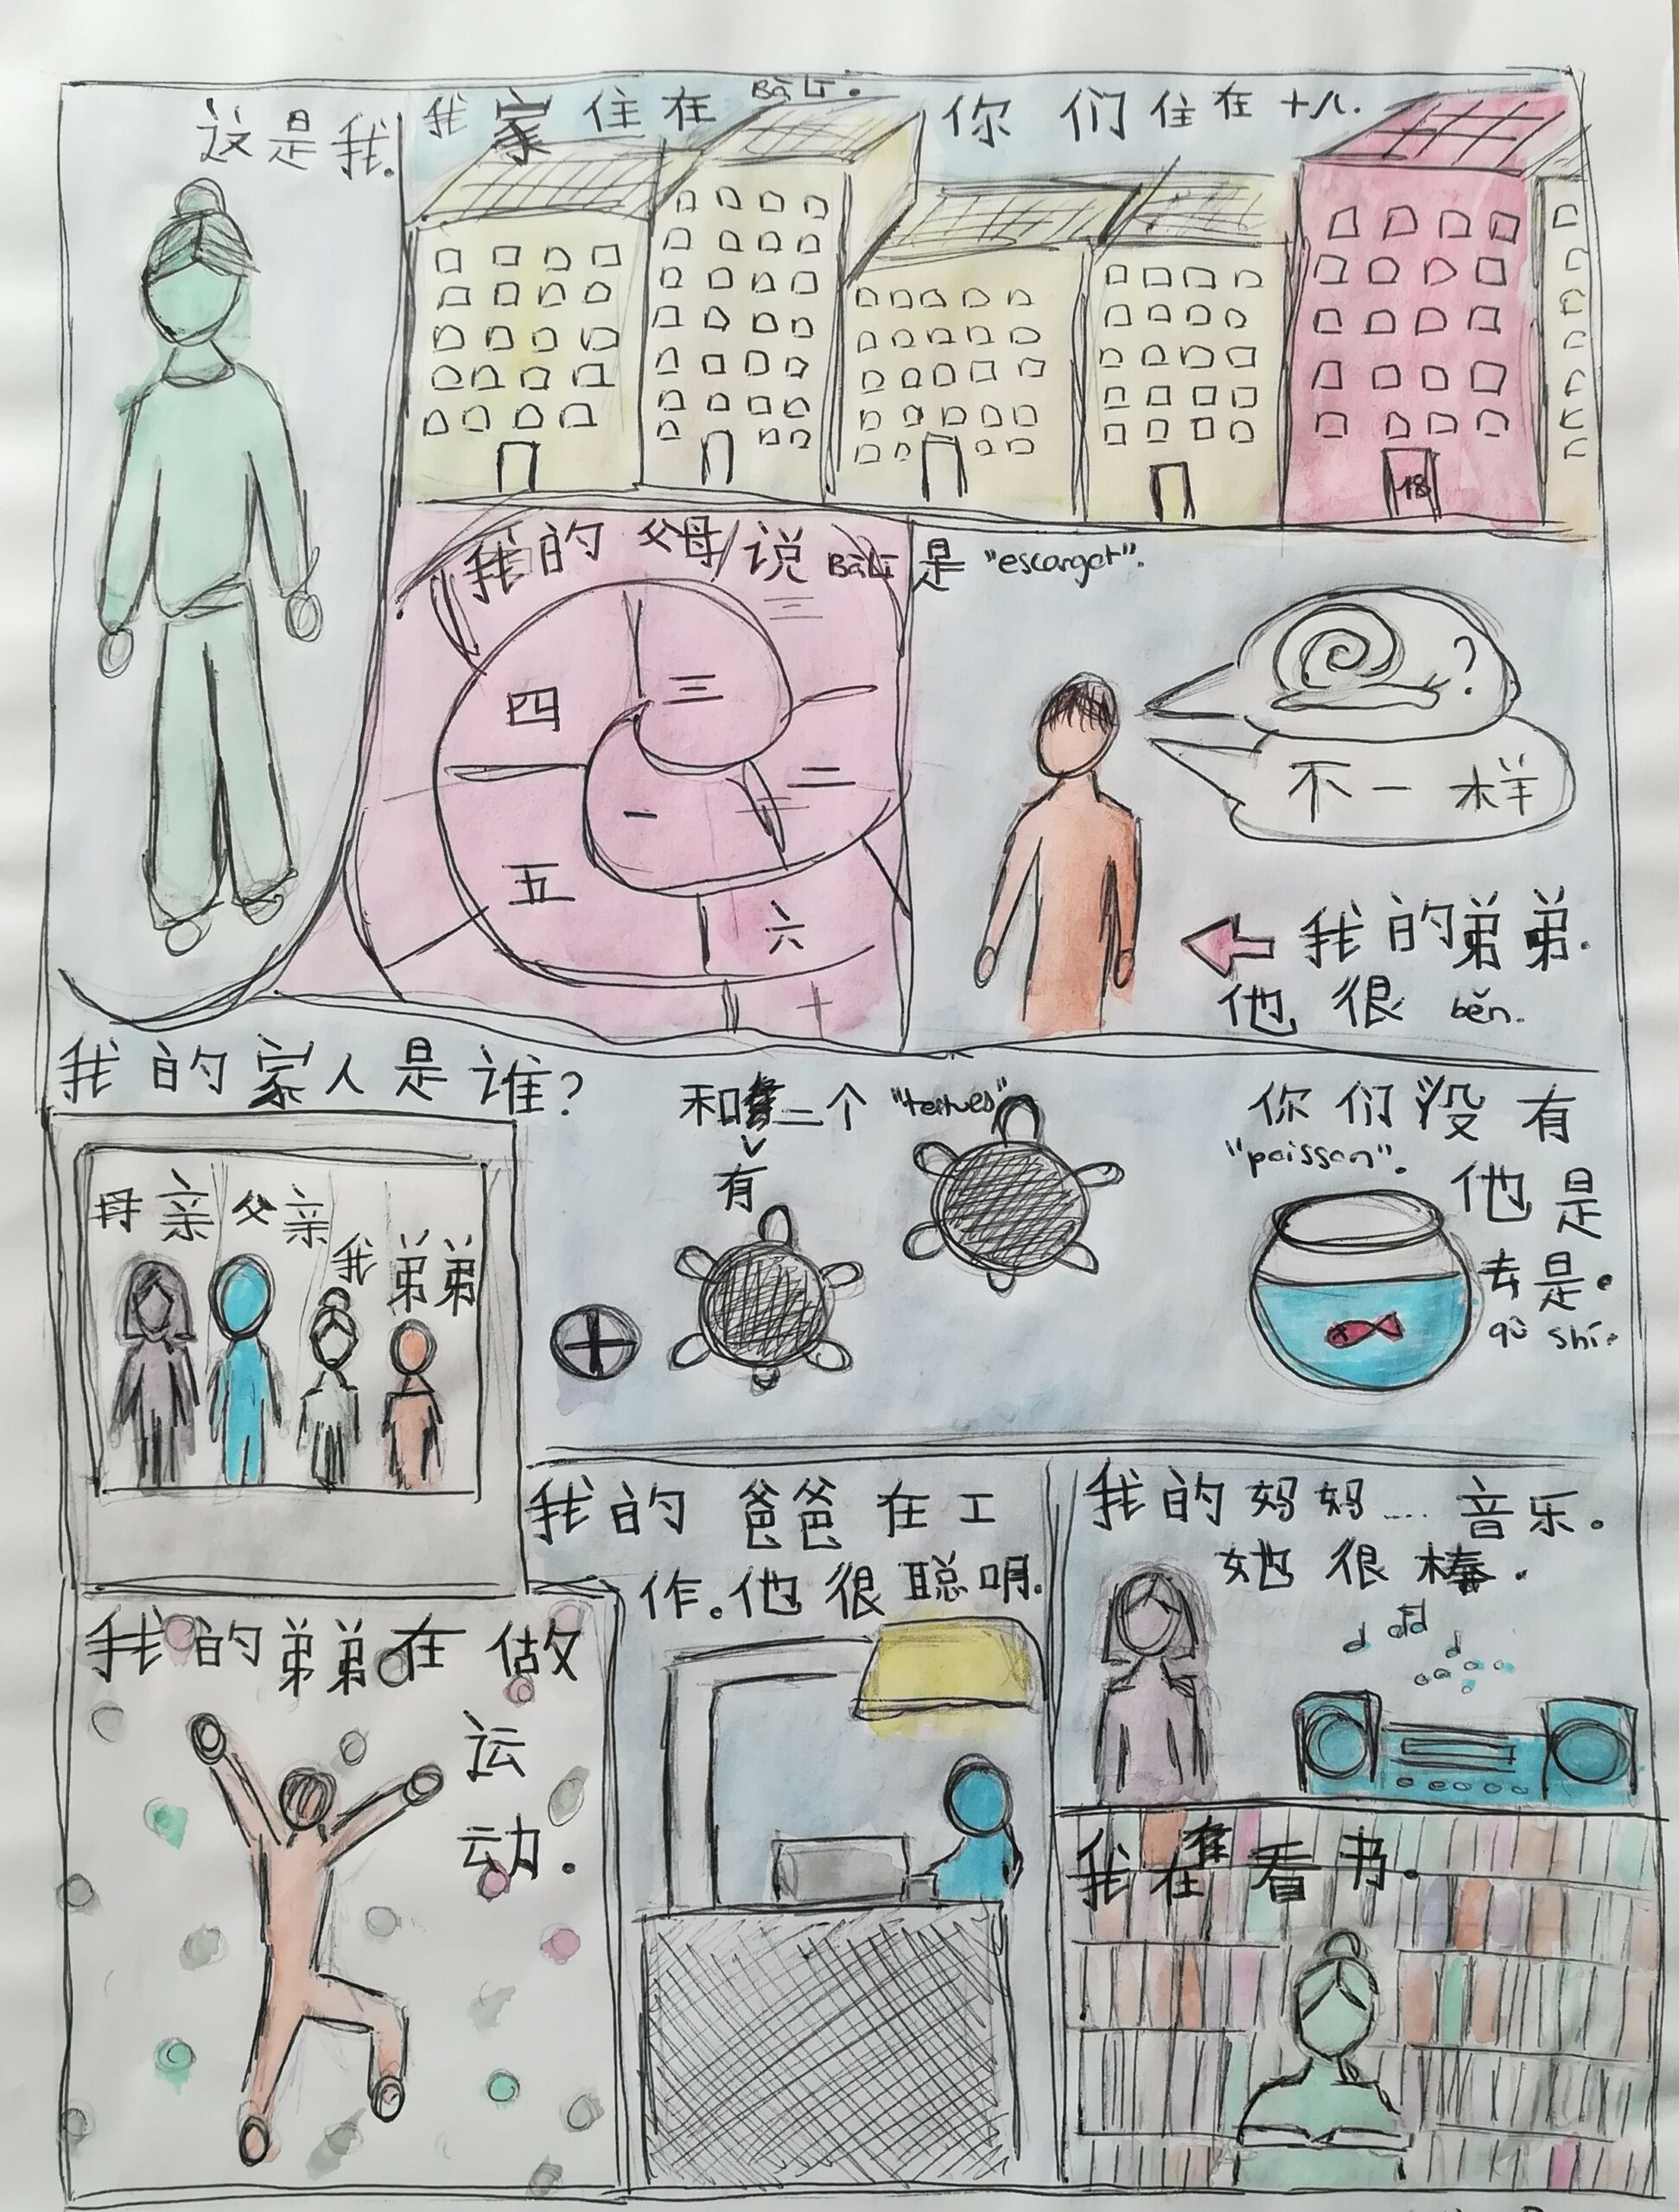 这是我.
我家住在 Bālí.
你们住在十八.
18
我的父母说 Bālí 是 "escargot".
三
四
二
一
五
六
十
?
不一样
我的弟弟.
他很 bĕn.
我的家人是谁?
母亲
父亲
我
弟弟
和二个 "tortues"
有
你们没有
"poisson".
他是
去是.
qù shí.
我的爸爸在工
作.他很聪明.
我的妈妈.... 音乐.
她很棒.
我的弟弟在做
运
动.
我在看书.